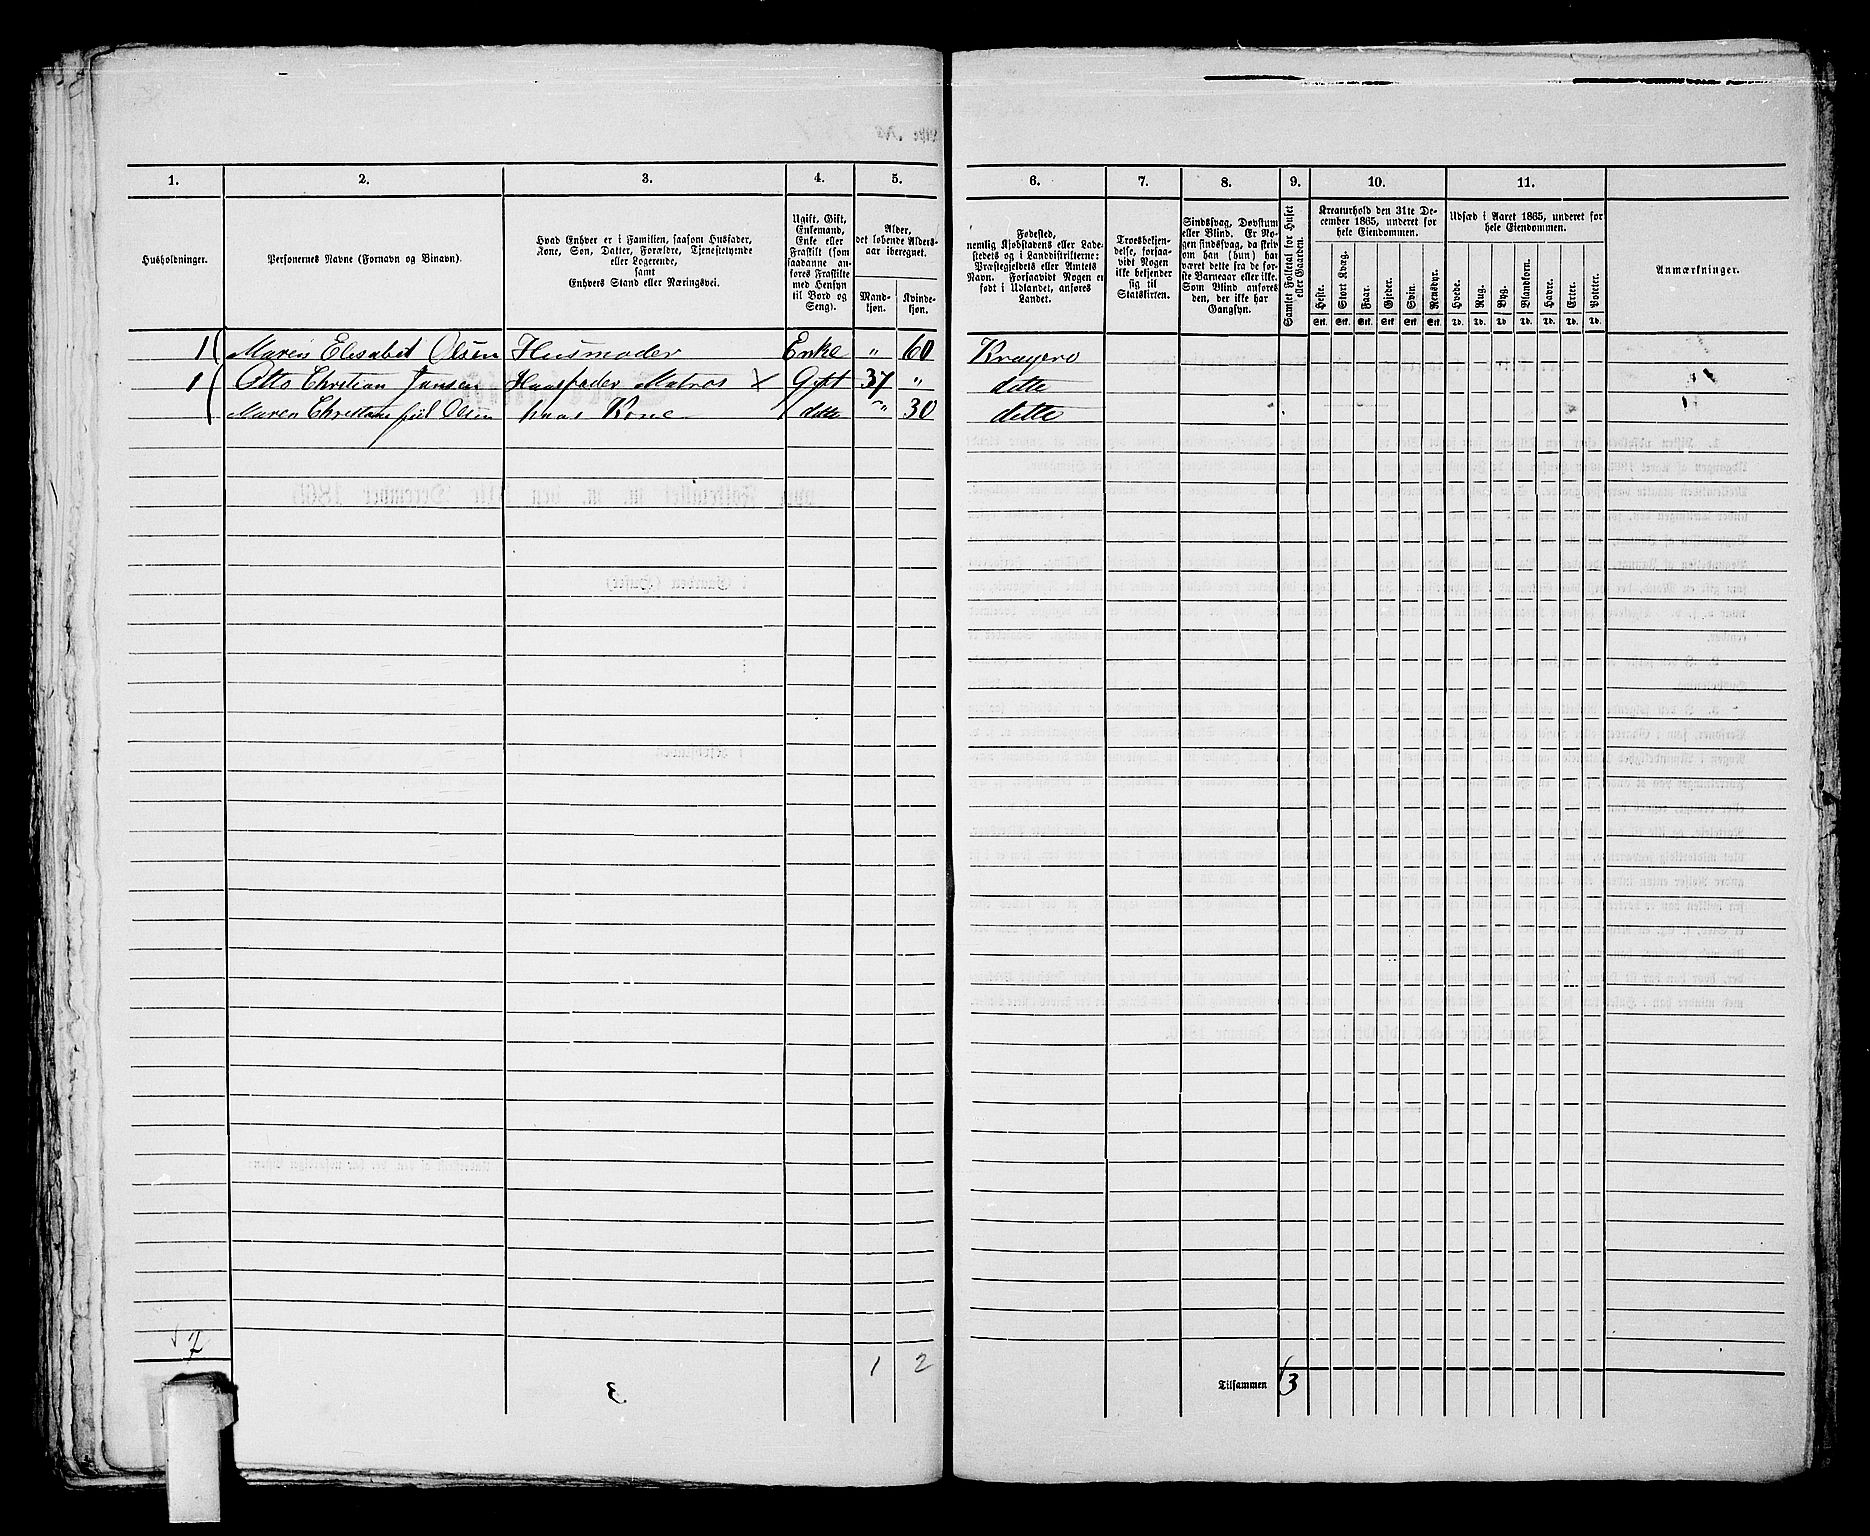 1. 2. 3. 4. 5. 6. 7. 8. 9. 10. 11.
Husholdninger.
Personernes Navne (Fornavn og Binavn).
Hvad Enhver er i Familien, saasom Husfader,
Kone, Søn, Datter, Forældre, Tjenestetyende
eller Logerende,
samt
Enhvers Stand eller Næringsvei.
Ugift, Gift,
Enkemand,
Enke eller
Fraskilt (som
saadanne an-
føres Fraskilte
med Hensyn
til Bord og
Seng).
Alder,
det løbende Alders-
aar iberegnet.
Mand-
kjøn.
Kvinde-
kjøn.
Fødested,
nemlig Kjøbstadens eller Lade-
stedets og i Landdistrikterne:
Præstegjeldets eller Amtets
Navn. Forsaavidt Nogen er
født i Udlandet, anføres
Landet.
Troesbekjen-
delse, forsaa-
vidt Nogen
ikke bekjender
sig til
Statskirken.
Sindssvag, Døvstum
eller Blind. Er No-
gen sindssvag, da skriv
om han (hun) har
været dette fra de før-
ste Barneaar eller ikke.
Som Blind anføres
den, der ikke har
Gangsyn.
Samlet Folketal for Huset
eller Gaarden.
Kreaturhold den 31te De-
cember 1865, underet for
hele Eiendommen.
Heste. Stort Kvæg. Faar. Gjeder. Svin. Rensdyr.
Stk. Stk. Stk. Stk. Stk. Stk.
Udsæd i Aaret 1865, underet for
hele Eiendommen.
Hvede. Rug. Byg. Blandkorn. Havre. Erter. Poteter.
Td. Td. Td. Td. Td. Td. Td.
Anmærkninger.
1 Maren Elisabet Olsen Husmoder Enke " 60 Kragerø
1 Otto Christian Jansen Huusfader Matros X Gift 37 " dette
Maren Christiane Olsen hans Kone dette " 30 dette
2
1 2
3
Tilsammen 3